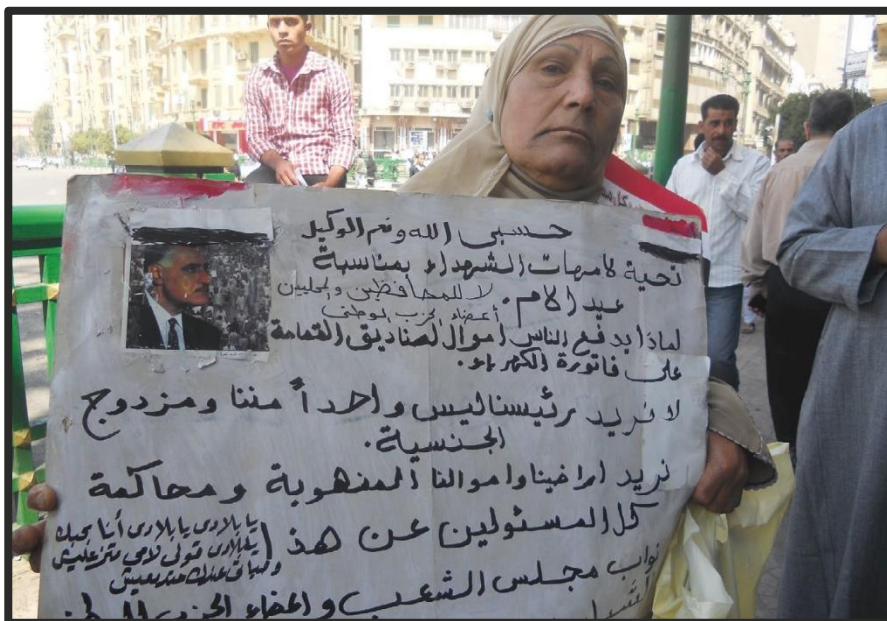 حسبى الله ونعم الوكيل
تحية لامهات الشهداء بمناسبة
عيد الام.
لا للمحافظين والمحليات
أعضاء الحزب الوطنى
لماذا يدفع الناس اموال لصناديق القمامة
على فاتورة الكهرباء.
لا نريد رئيسنا ليس واحداً مننا ومزدوج
الجنسية.
نريد اراضينا واموالنا المنهوبة ومحاكمة
كل المسئولين عن هذا
يا بلادى يا بلادى أنا بحبك
يا بلادى قولى لامى متزعليش
وحياتى عندك متعيطيش
نواب مجلس الشعب واعضاء الحزب